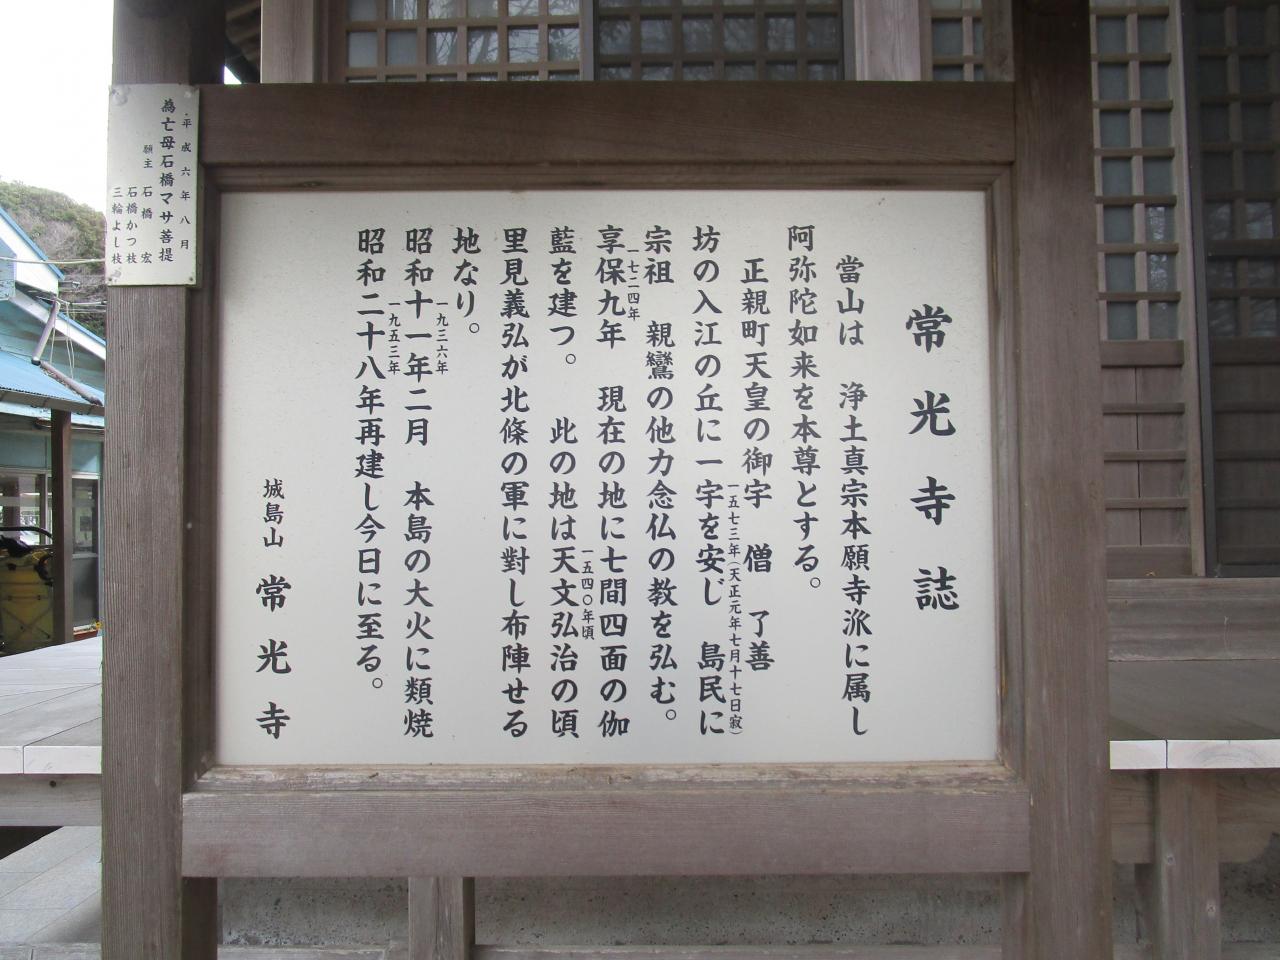 常光寺誌
當山は　浄土真宗本願寺派に属し
阿弥陀如来を本尊とする。
正親町天皇の御宇　僧　了善
一五七三年（天正元年七月十七日寂）
坊の入江の丘に一宇を安じ　島民に
宗祖　親鸞の他力念仏の教を弘む。
一七二四年
享保九年　現在の地に七間四面の伽
藍を建つ。　此の地は天文弘治の頃
一五四〇年頃
里見義弘が北條の軍に對し布陣せる
地なり。
一九三六年
昭和十一年二月　本島の大火に類焼
一九五三年
昭和二十八年再建し今日に至る。
城島山　常光寺
平成六年八月
為亡母石橋マサ菩提
願主　石橋　宏
石橋かつ枝
三輪よし枝